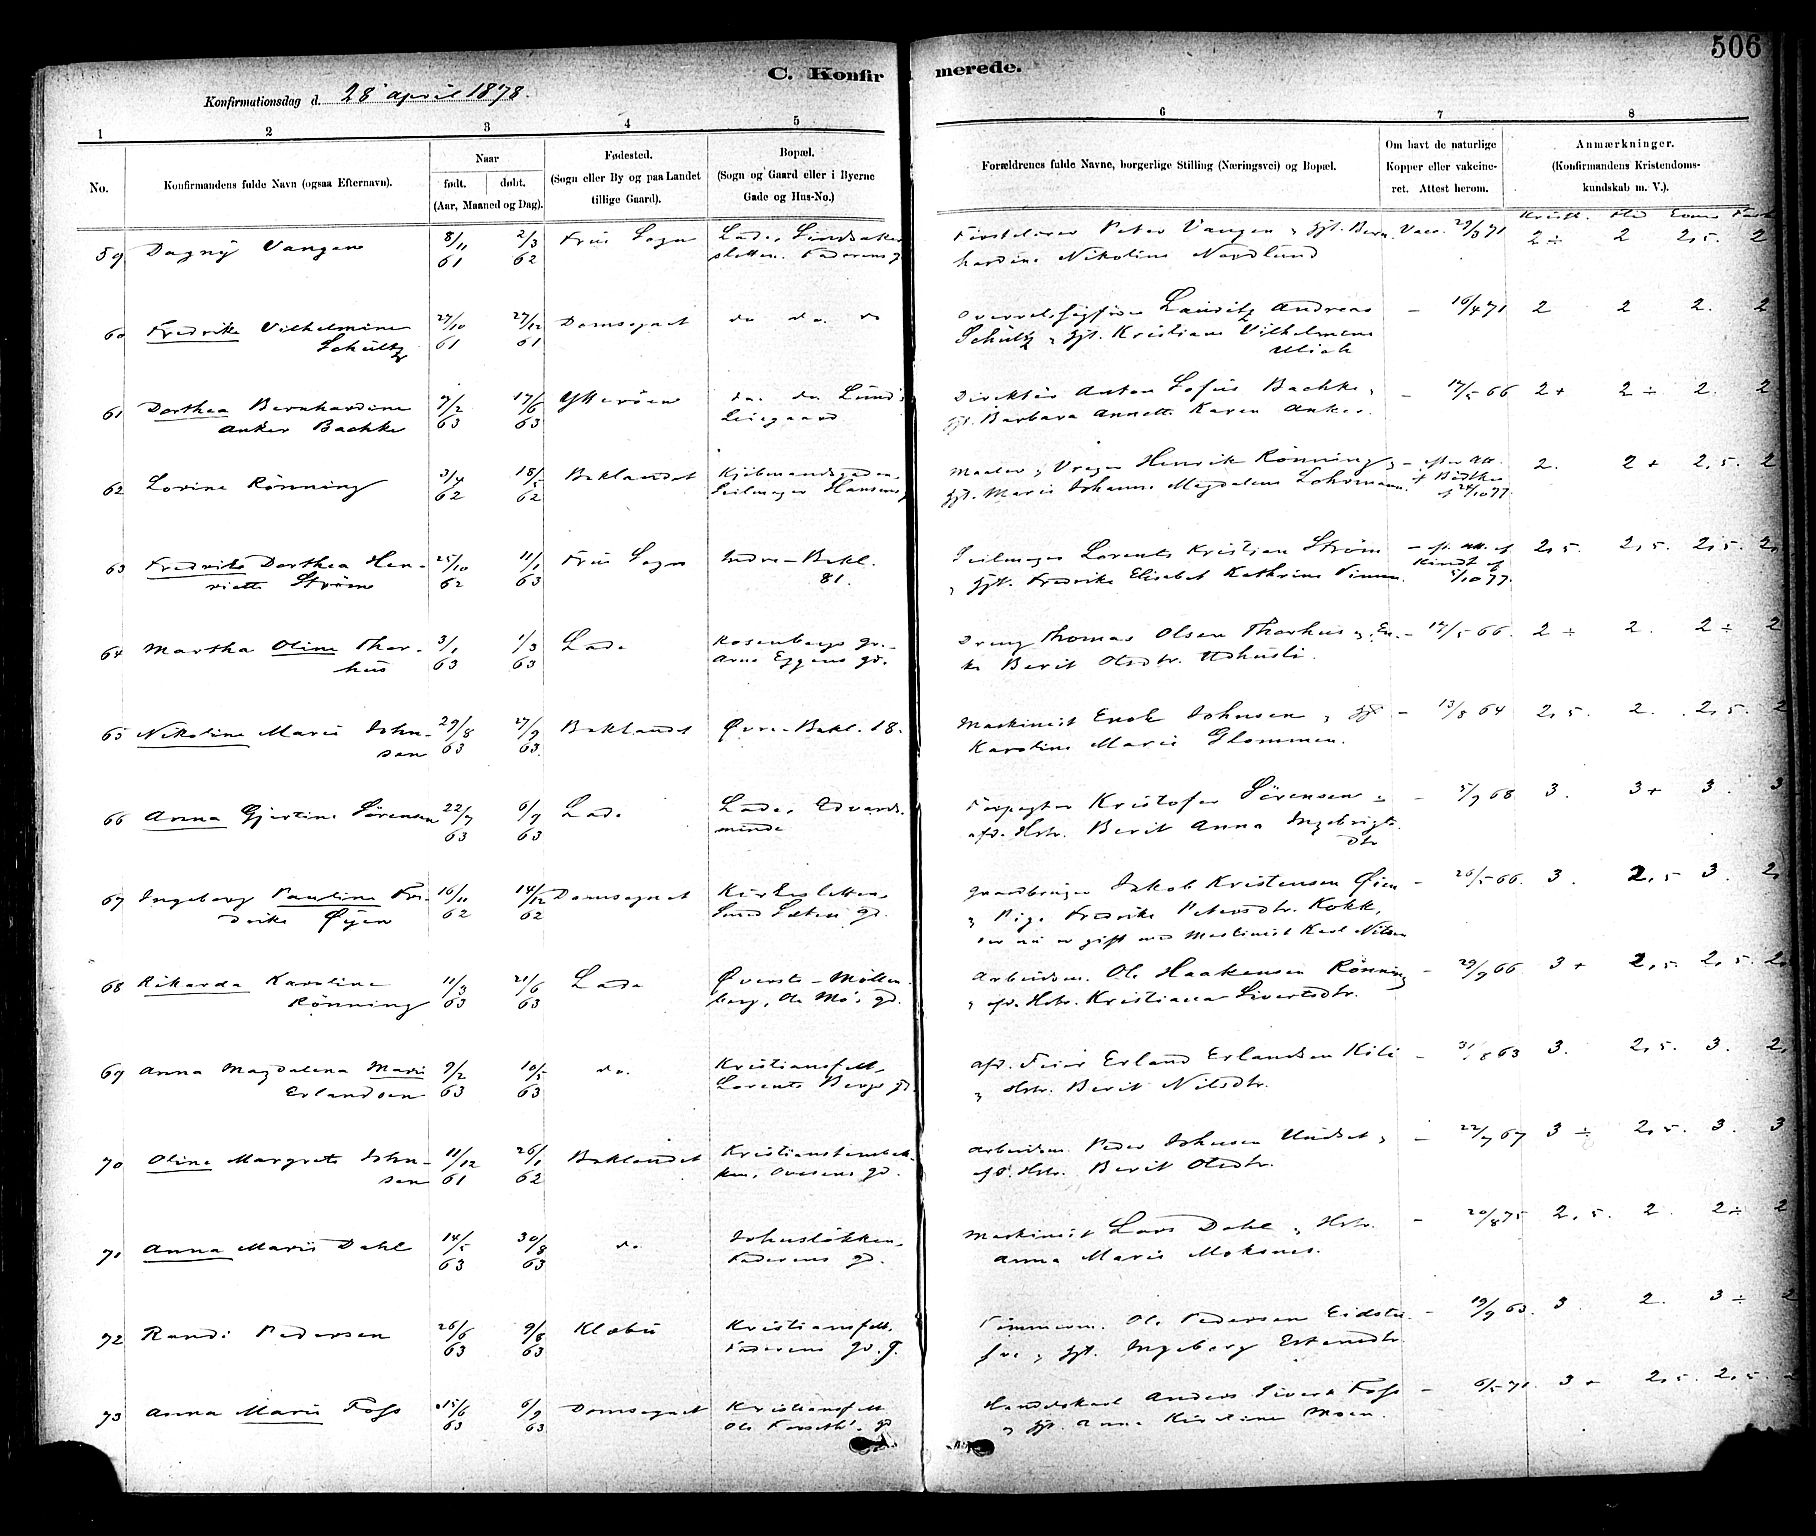 506
C. Konfirmerede.
Konfirmationsdag d. 28 april 1878.
1 2 3 4 5 6 7 8
No.
Konfirmandens fulde Navn (ogsaa Efternavn).
Naar
født. døbt.
(Aar, Maaned og Dag).
Fødested.
(Sogn eller By og paa Landet
tillige Gaard).
Bopæl.
(Sogn og Gaard eller i Byerne
Gade og Hus-No.)
Forældrenes fulde Navne, borgerlige Stilling (Næringsvei) og Bopæl.
Om havt de naturlige
Kopper eller vakcine-
ret. Attest herom.
Anmærkninger.
(Konfirmandens Kristendoms-
kundskab m. V.).
59 Dagny Vangen 8/11 2/3 Frue Sogn Lade, Peter Vangen Vacc. 29/3 71 2 ÷ 2 2,5. 2
61 62 Faderens Nikoline Nordlund
60 Fredrike Vilhelmine 27/10 27/12 Domsognet do do. do Lauritz Andreas — 16/4 71 2 2 2. 2
Schultz 61 61 Schultz Kristiane Vilhelmine
61 Dorthea Bernhardine 7/2 17/6 Ytterøen do. do Direktør Anton Sofus Bachke — 17/5 66 2+ 2 ÷ 2. 2
Anker Bachke 63 63 gjt. Barbara Annette Karen Anker.
62 Lovine Rønning 3/4 18/5 Baklandet Kjøbmandsgaden, Maaler Henrik Rønning — efter Att. 2. 2 + 2,5. 2
62 62 Seilmager Hansens gjt. Marie Johanne Magdalene 24/10 77.
63 Fredrike Dorthea Hen- 25/10 11/1 Frue Sogn Indre-Bakl. Seilmager Lorents Kristian Strøm 2,5. 2,5. 2,5.
riette Strøm 62 63 81. gjt. Fredrike Elisabet Kathrine 5/10 77.
64 Martha Oline Thor- 3/1 1/3 Lade Rosenborgs gr. Dreng Thomas Olsen Thorhus — 17/5 66. 2 ÷ 2. 2 ÷ 2
hus 63 63 Arne Eggens gd. Berit Olsdtr.
65 Nikoline Marie John- 29/8 27/9 Baklandet Øvre-Bakl. 18. Maskinist Enok Johnsen gjt — 13/8 64 2,5. 2. 2,5. 2
sen 63 63. Karoline Marie Glommen.
66 Anna Gjertine Sørensen 22/7 6/9 Lade Lade, Edvards- Forpagter Kristofer Sørensen — 5/9 68 3. 3+ 3. 3
63 63 minde afd. Hstr. Berit Anna Ingebrigts-
dtr
67 Ingeborg Pauline Fre- 16/11 14/12 Domsognet Kirkesletten, Jakob Kristensen Øien — 26/5 66. 3. 2,5 3.
drike Øyen 62 62 gd. Pige Fredrike Petersdtr. Kokk,
der nu er gift med Maskinist Karl Nilsen
68 Rikarda Karoline 11/3 21/6 Lade Øverste-Møllen- Arbeidsm. Ole Haakensen Rønning — 29/9 66 3 + 2,5. 2,5.
Rønning 63 63 berg, Ole Mo's gd. afd. Hstr. Kristianna Sivertsdtr.
69 Anna Magdalena Marie 9/2 10/5 do. Kristiansfeldt, afd. Feier Erland Erlandsen — 31/8 63 3. 2,5. 3.
Erlandsen 63 63 Lorents Bergs gd. Hstr. Berit Nilsdtr.
70 Oline Margrete John- 11/12 26/1 Baklandet Kristianstensbak- Arbeidsm. Peder Johnsen — 22/7 67 3 ÷ 2,5. 3. 3
sen 61 62 ken, Ovesens gd. afd. Hstr. Berit Olsdtr.
71 Anna Marie Dahl 14/5 30/8 do. Johnsløkken, Maskinist Lars Dahl Hstr. — 20/8 75 2,5. 2. 2÷ 2
63 63 Faderens gd. Anna Marie Moksnes.
72 Randi Pedersen 26/6 9/8 Klæbu Kristiansfeldt, Tømmerm. Ole Pedersen — 19/9 63. 3. 2. 3 ÷ 2
63 63 Faderens gd. gjt. Ingeborg Estensdtr.
73 Anna Marie Foss 15/6 6/9 Domsognet Kristiansfeldt Handelskarl Anders Foss — 6/5 71. 3 + 2,5. 2,5.
63 63 Ole gd gjt. Anna Moen.